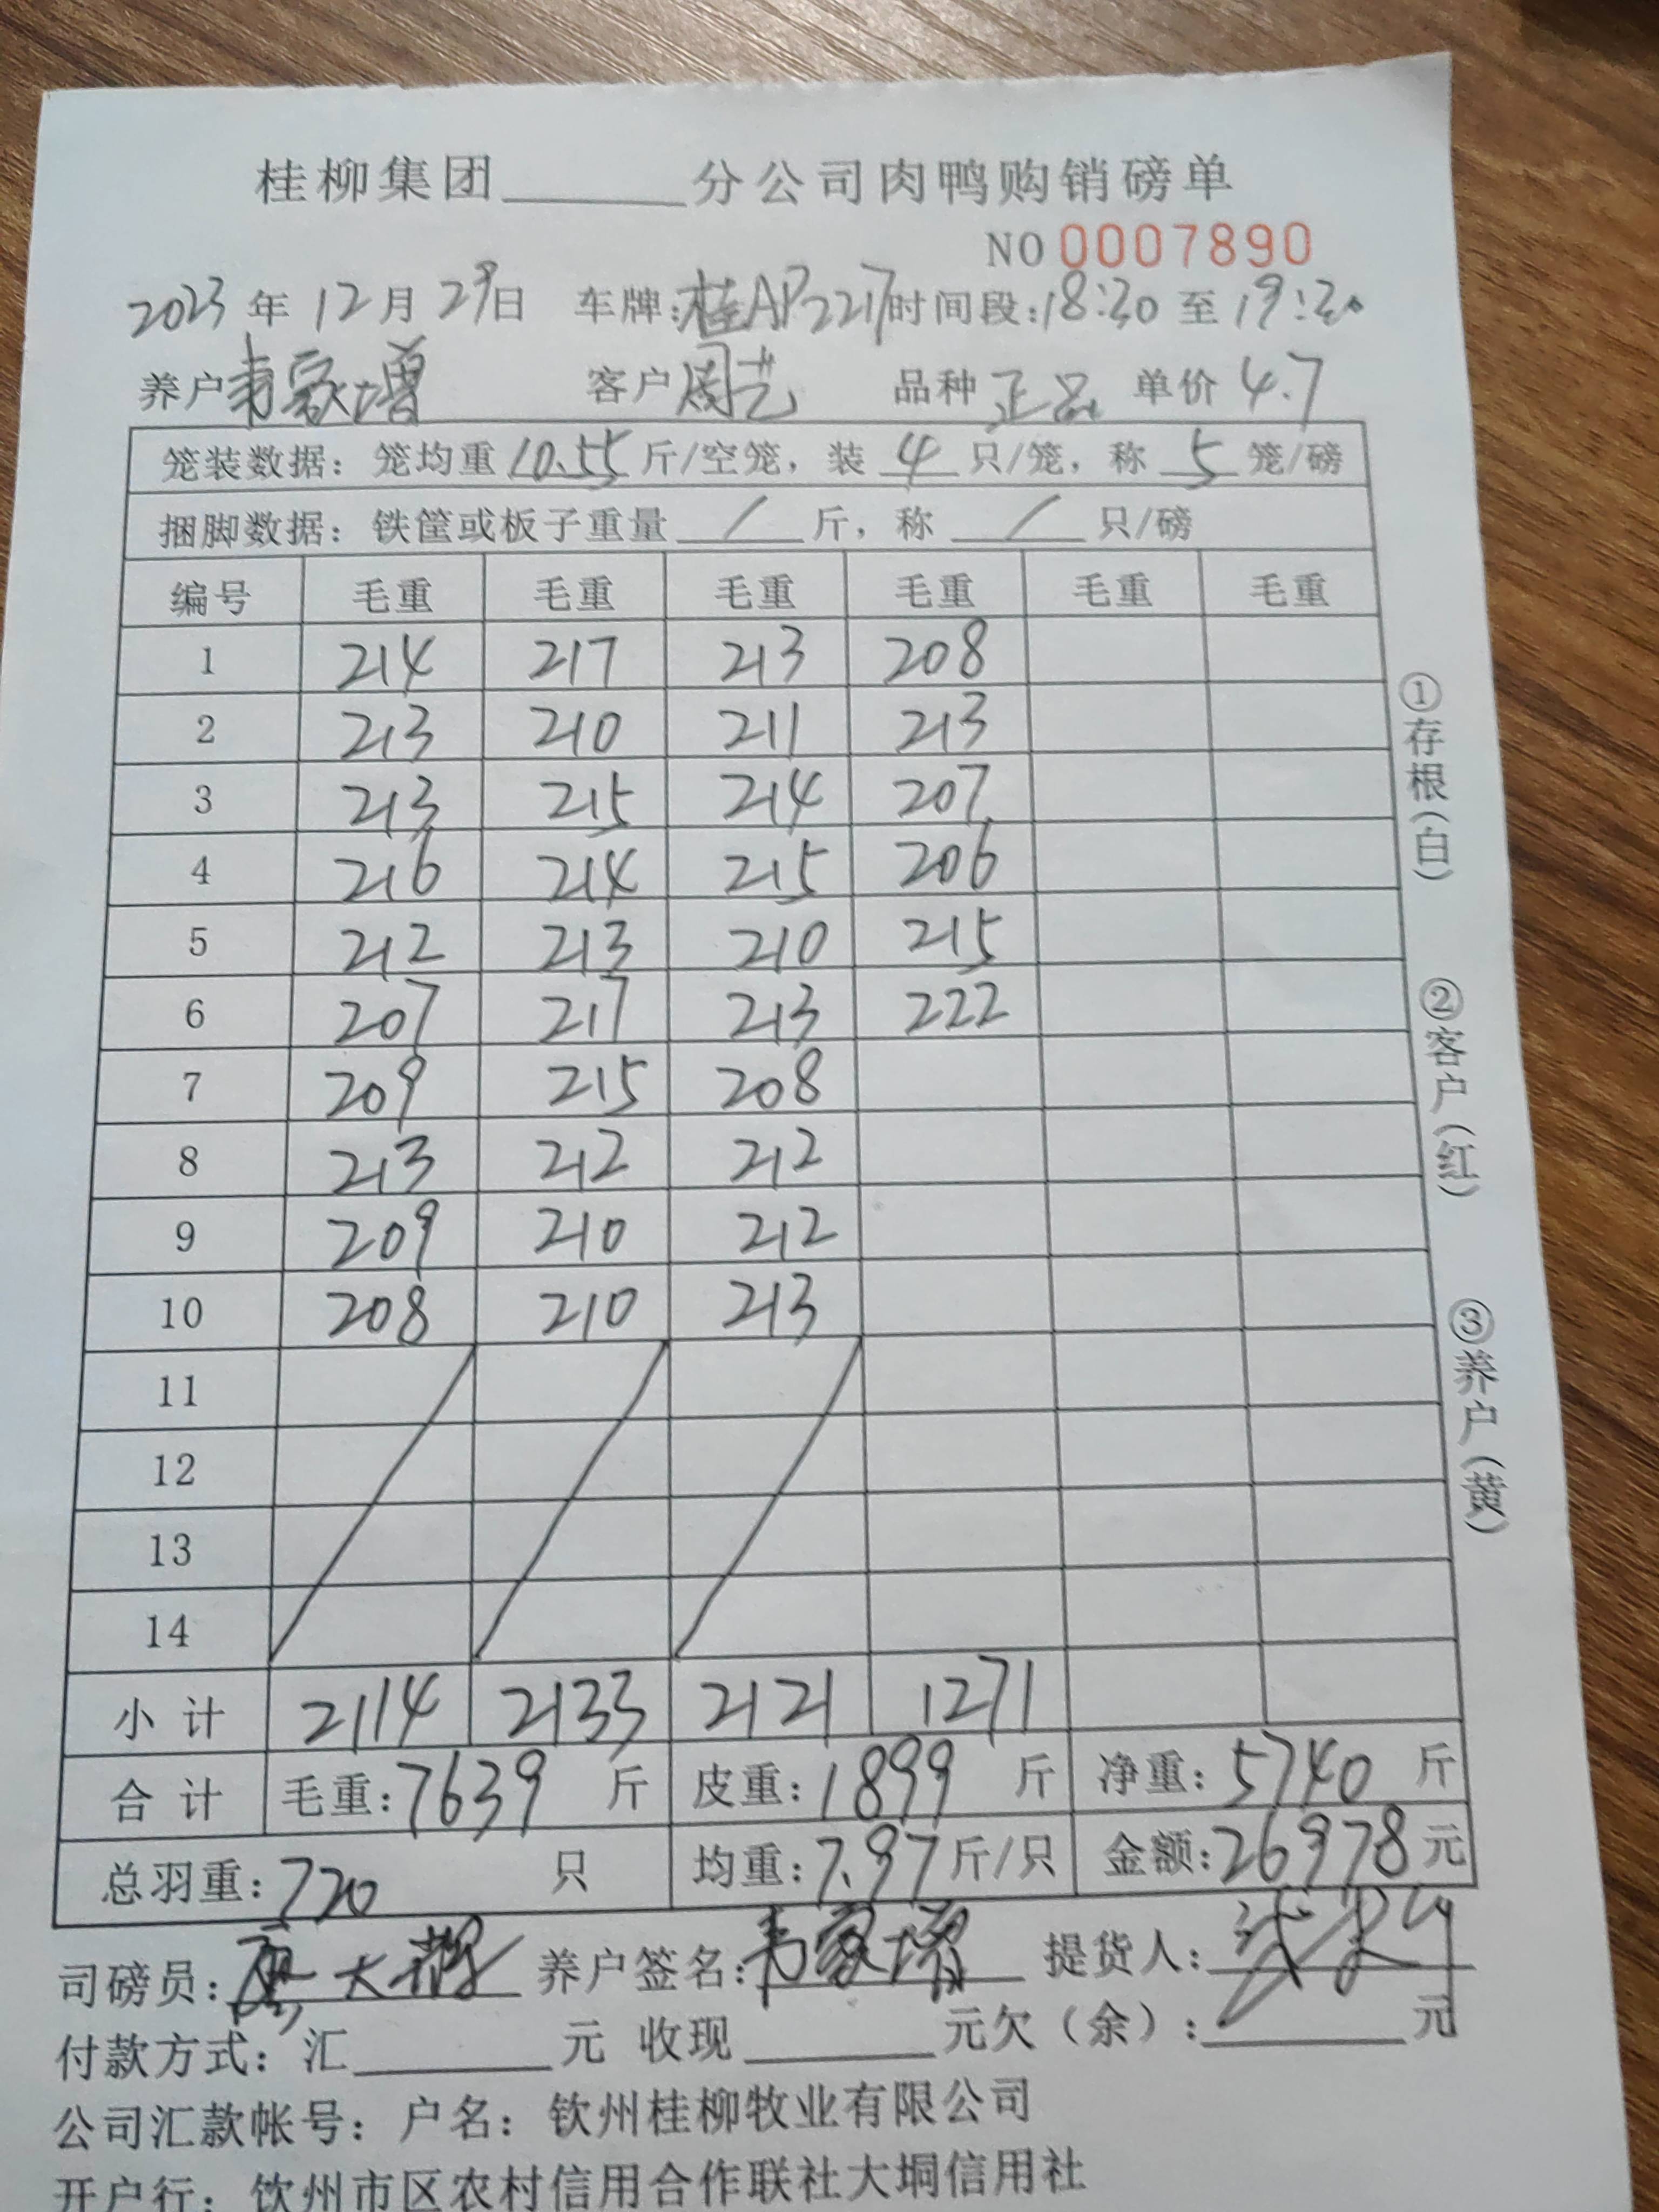 桂柳集团______分公司肉鸭购销磅单
NO 0007890
2023年12月29日 车牌:桂AP2217时间段:18:30至19:30
养户韦家增 客户周艺 品种正品 单价4.7
笼装数据：笼均重10.55斤/空笼，装4只/笼，称5笼/磅
捆脚数据：铁筐或板子重量/斤，称/只/磅
编号 毛重 毛重 毛重 毛重 毛重 毛重
1 214 217 213 208
2 213 210 211 213
3 213 215 214 207
4 216 214 215 206
5 212 213 210 215
6 207 217 213 222
7 209 215 208
8 213 212 212
9 209 210 212
10 208 210 213
11
12
13
14
小计 2114 2133 2121 1271
合计 毛重:7639斤 皮重:1899斤 净重:5740斤
总羽重:720只 均重:7.97斤/只 金额:26978元
司磅员: 养户签名:韦家增 提货人:
付款方式：汇______元 收现______元欠（余）:______元
公司汇款帐号：户名：钦州桂柳牧业有限公司
开户行：钦州市区农村信用合作联社大垌信用社
①存根（白） ②客户（红） ③养户（黄）